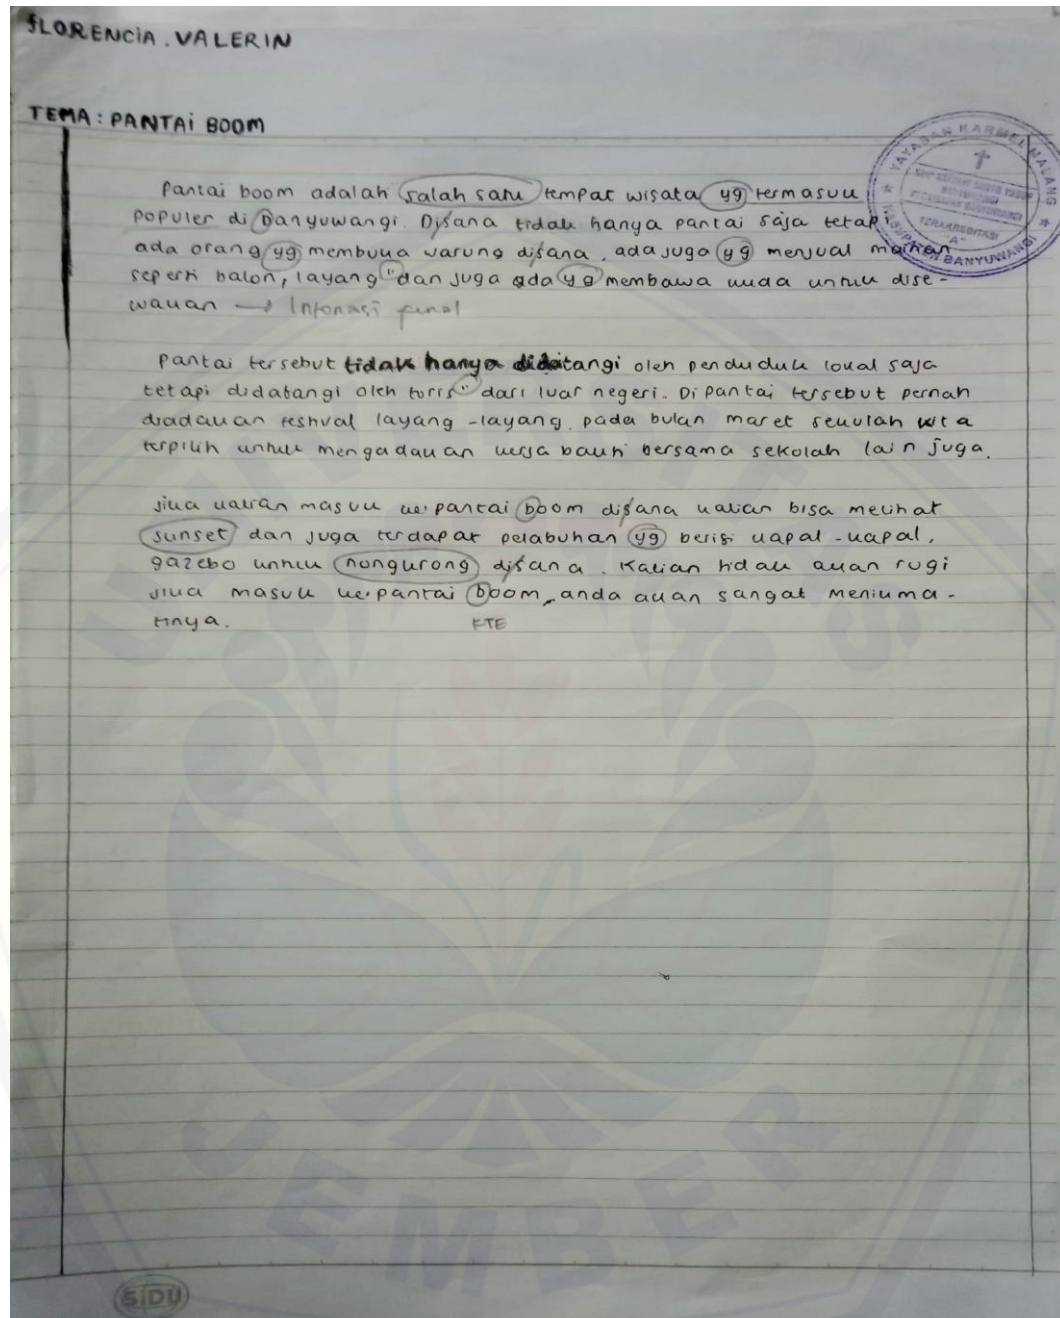 FLORENCIA . VALERIN
TEMA : PANTAI BOOM
YAYASAN KARMEL MALANG
TERAKREDITASI
"A"
KABUPATEN BANYUWANGI
Pantai boom adalah salah satu tempat wisata yg termasuk
populer di Banyuwangi. Disana tidak hanya pantai saja tetapi
ada orang yg membuka warung disana, ada juga yg menjual mainan
seperti balon, layang" dan juga ada yg membawa kuda untuk dise-
wakan → Intonasi final
Pantai tersebut tidak hanya didatangi oleh penduduk lokal saja
tetapi didatangi oleh turis" dari luar negeri. Di pantai tersebut pernah
diadakan festival layang-layang. pada bulan maret sekolah kita
terpilih untuk mengadakan kerja bakti bersama sekolah lain juga.
jika kalian masuk ke pantai boom disana kalian bisa melihat
sunset dan juga terdapat pelabuhan yg berisi kapal-kapal,
gazebo untuk nongkrong disana. Kalian tidak akan rugi
jika masuk ke pantai boom, anda akan sangat menikma-
tinya.
KTE
SIDU
UNIVERSITAS
JEMBER